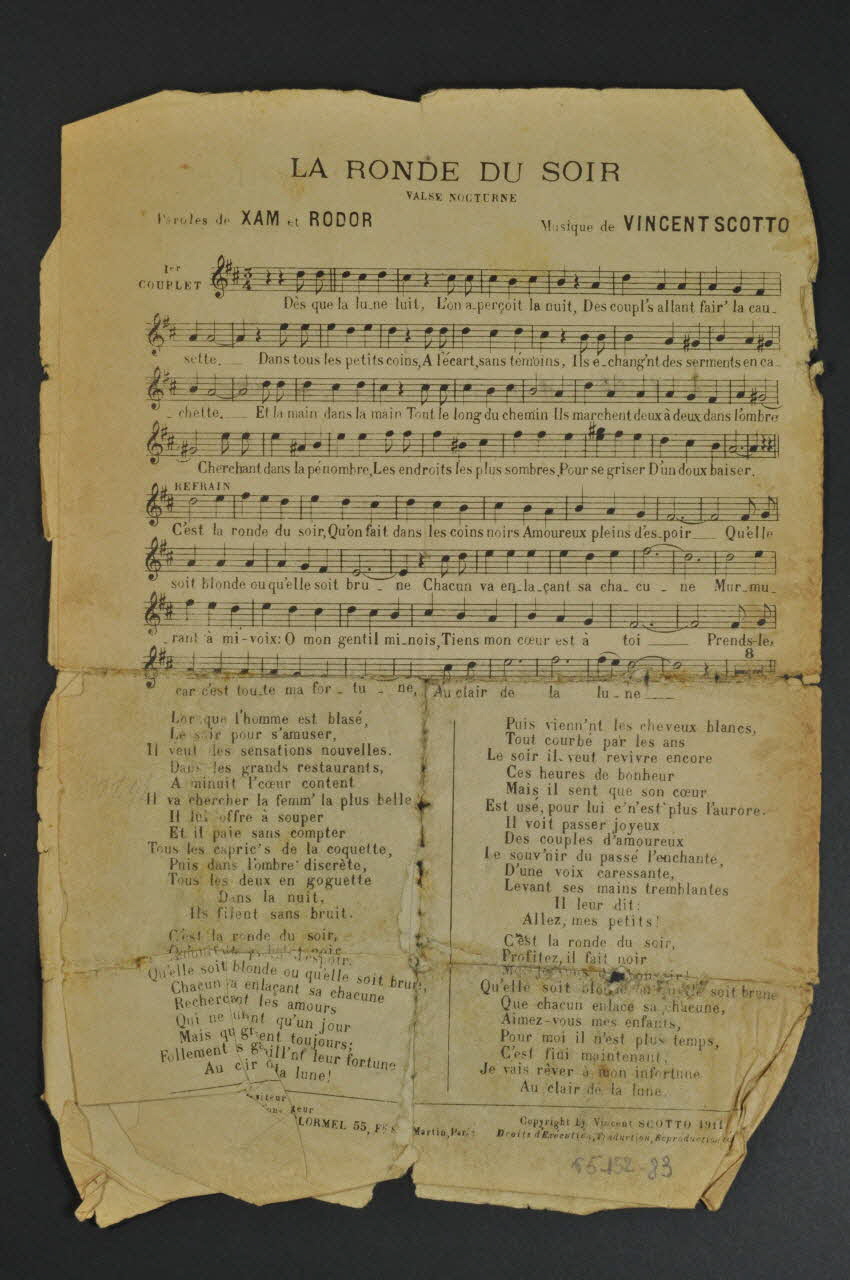 LA RONDE DU SOIR
VALSE NOCTURNE
Paroles de XAM et RODOR
Musique de VINCENT SCOTTO
1er
COUPLET
3
4
Dès que la lu_ne luit, L'on a_perçoit la nuit, Des coupl's allant fair' la cau_
sette.___ Dans tous les petits coins, A l'écart, sans témoins, Ils é_chang'nt des serments en ca_
_ chette.___ Et la main dans la main Tout le long du chemin Ils marchent deux à deux dans l'ombre
Cherchant dans la pénombre, Les endroits les plus sombres, Pour se griser D'un doux baiser.
REFRAIN
C'est la ronde du soir, Qu'on fait dans les coins noirs Amoureux pleins d'es_poir___ Qu'elle
soit blonde ou qu'elle soit bru _ ne Chacun va en_la_çant sa cha_cu _ ne Mur_mu_
_rant à mi-voix: O mon gentil mi_nois, Tiens mon cœur est à toi ___ Prends-le,
8
car c'est tou_te ma for_ tu _ ne, Au clair de la lu_ne ___
Lorsque l'homme est blasé,
Le soir pour s'amuser,
Il veut les sensations nouvelles.
Dans les grands restaurants,
A minuit l'cœur content
Il va chercher la femm' la plus belle
Il lui offre à souper
Et il paie sans compter
Tous les capric's de la coquette,
Puis dans l'ombre discrète,
Tous les deux en goguette
Dans la nuit,
Ils filent sans bruit.
C'est la ronde du soir,
Qu'elle soit blonde ou qu'elle soit brune,
Chacun va enlaçant sa chacune
Recherchant les amours
Qui ne qu'un jour
Mais qu toujours;
Follement leur fortune
Au clair la lune!
Puis vienn'nt les cheveux blancs,
Tout courbé par les ans
Le soir il veut revivre encore
Ces heures de bonheur
Mais il sent que son cœur
Est usé, pour lui c'n'est plus l'aurore.
Il voit passer joyeux
Des couples d'amoureux
Le souv'nir du passé l'enchante,
D'une voix caressante,
Levant ses mains tremblantes
Il leur dit:
Allez, mes petits!
C'est la ronde du soir,
Profitez, il fait noir
Qu'elle soit blonde ou qu'elle soit brune
Que chacun enlace sa chacune,
Aimez-vous mes enfants,
Pour moi il n'est plus temps,
C'est fini maintenant,
Je vais rêver à mon infortune
Au clair de la lune.
LORMEL 55, Martin, Paris
Copyright by Vincent SCOTTO 1911
Droits d'Exécution, Traduction, Reproduction
55-152-83